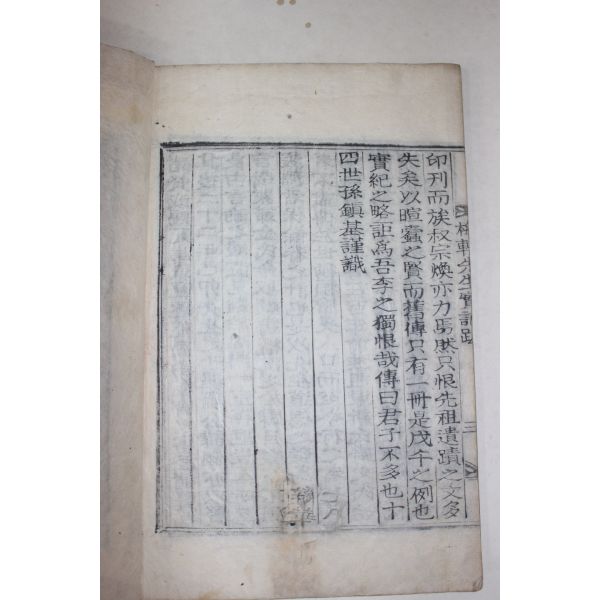 軒先生實記跋
三
印刊而族叔宗煥亦力焉然只恨先祖遺蹟之文多
失矣以暄蠧之賢而舊傳只有一冊是戊午之例也
實紀之略詎爲吾李之獨恨哉傳曰君子不多也十
四世孫鎭基謹識